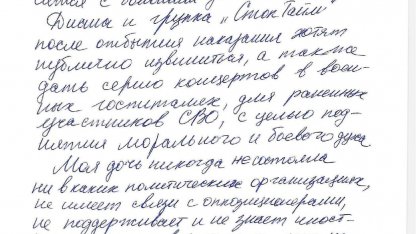 Диана и группа „Стоп Тайм"
после отбытия наказания хотят
публично извиниться, а также
дать серию концертов в воен-
ных госпиталях, для раненных
участников СВО, с целью под-
нятия морального и боевого духа
Моя дочь никогда не состояла
ни в каких политических организациях,
не имеет связи с оппозиционерами,
не поддерживает и не знает иност-